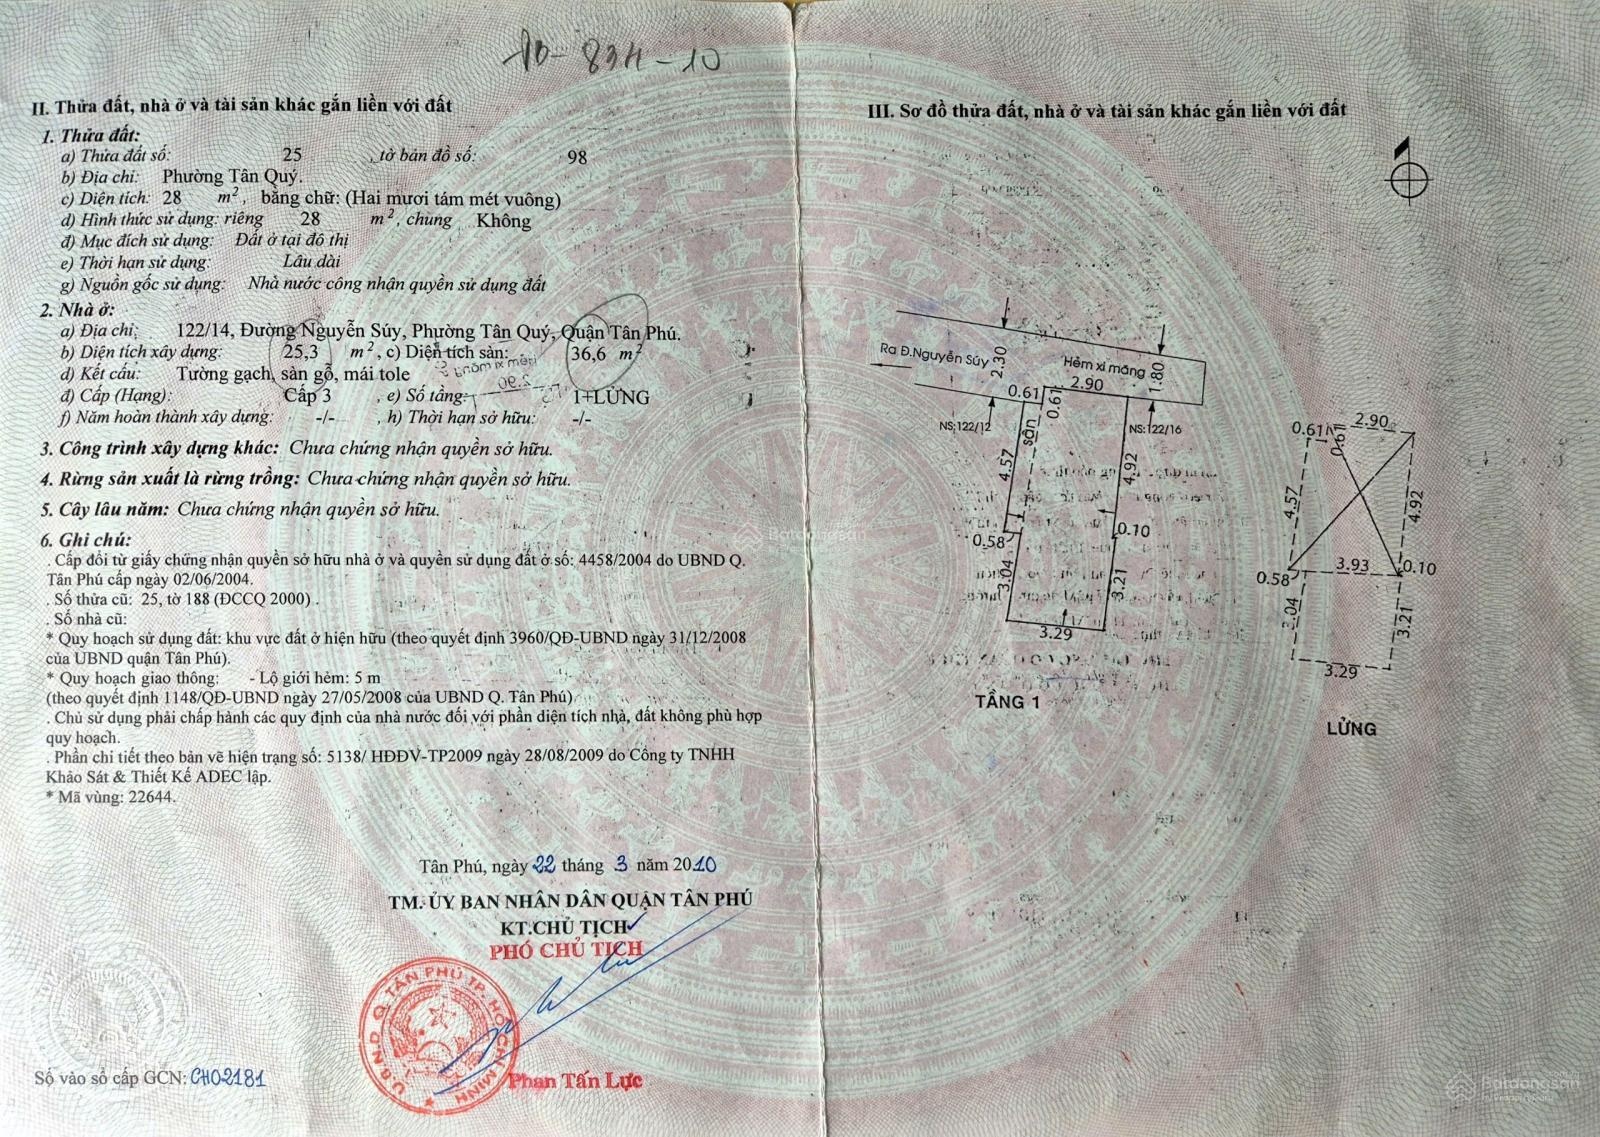 II. Thửa đất, nhà ở và tài sản khác gắn liền với đất
1. Thửa đất:
a) Thửa đất số: 25 , tờ bản đồ số: 98
b) Địa chỉ: Phường Tân Quý.
c) Diện tích: 28 m², bằng chữ: (Hai mươi tám mét vuông)
d) Hình thức sử dụng: riêng 28 m², chung Không
đ) Mục đích sử dụng: Đất ở tại đô thị
e) Thời hạn sử dụng: Lâu dài
g) Nguồn gốc sử dụng: Nhà nước công nhận quyền sử dụng đất
2. Nhà ở:
a) Địa chỉ: 122/14, Đường Nguyễn Súy, Phường Tân Quý, Quận Tân Phú.
b) Diện tích xây dựng: 25,3 m², c) Diện tích sàn: 36,6 m²
d) Kết cấu: Tường gạch, sàn gỗ, mái tole
đ) Cấp (Hạng): Cấp 3 , e) Số tầng: 1+LỬNG
f) Năm hoàn thành xây dựng: -/- , h) Thời hạn sở hữu: -/-
3. Công trình xây dựng khác: Chưa chứng nhận quyền sở hữu.
4. Rừng sản xuất là rừng trồng: Chưa chứng nhận quyền sở hữu.
5. Cây lâu năm: Chưa chứng nhận quyền sở hữu.
6. Ghi chú:
. Cấp đổi từ giấy chứng nhận quyền sở hữu nhà ở và quyền sử dụng đất ở số: 4458/2004 do UBND Q.
Tân Phú cấp ngày 02/06/2004.
. Số thửa cũ: 25, tờ 188 (ĐCCQ 2000) .
. Số nhà cũ:
* Quy hoạch sử dụng đất: khu vực đất ở hiện hữu (theo quyết định 3960/QĐ-UBND ngày 31/12/2008
của UBND quận Tân Phú).
* Quy hoạch giao thông: - Lộ giới hẻm: 5 m
(theo quyết định 1148/QĐ-UBND ngày 27/05/2008 của UBND Q. Tân Phú)
. Chủ sử dụng phải chấp hành các quy định của nhà nước đối với phần diện tích nhà, đất không phù hợp
quy hoạch.
. Phần chi tiết theo bản vẽ hiện trạng số: 5138/ HĐĐV-TP2009 ngày 28/08/2009 do Công ty TNHH
Khảo Sát & Thiết Kế ADEC lập.
* Mã vùng: 22644.
Tân Phú, ngày 22 tháng 3 năm 2010
TM. ỦY BAN NHÂN DÂN QUẬN TÂN PHÚ
KT.CHỦ TỊCH
PHÓ CHỦ TỊCH
U.B.N.D Q. TÂN PHÚ TP. HỒ CHÍ MINH
Phan Tấn Lực
Số vào sổ cấp GCN: CH02181
III. Sơ đồ thửa đất, nhà ở và tài sản khác gắn liền với đất
Ra Đ.Nguyễn Súy
2.30
Hẻm xi măng
1.80
0.61
0.61
2.90
NS:122/12
sân
NS:122/16
4.57
4.92
0.58
0.10
3.04
3.21
3.29
TẦNG 1
0.61
0.61
2.90
4.57
4.92
0.58
3.93
0.10
3.04
3.21
3.29
LỬNG
Batdongsan
Batdongsan